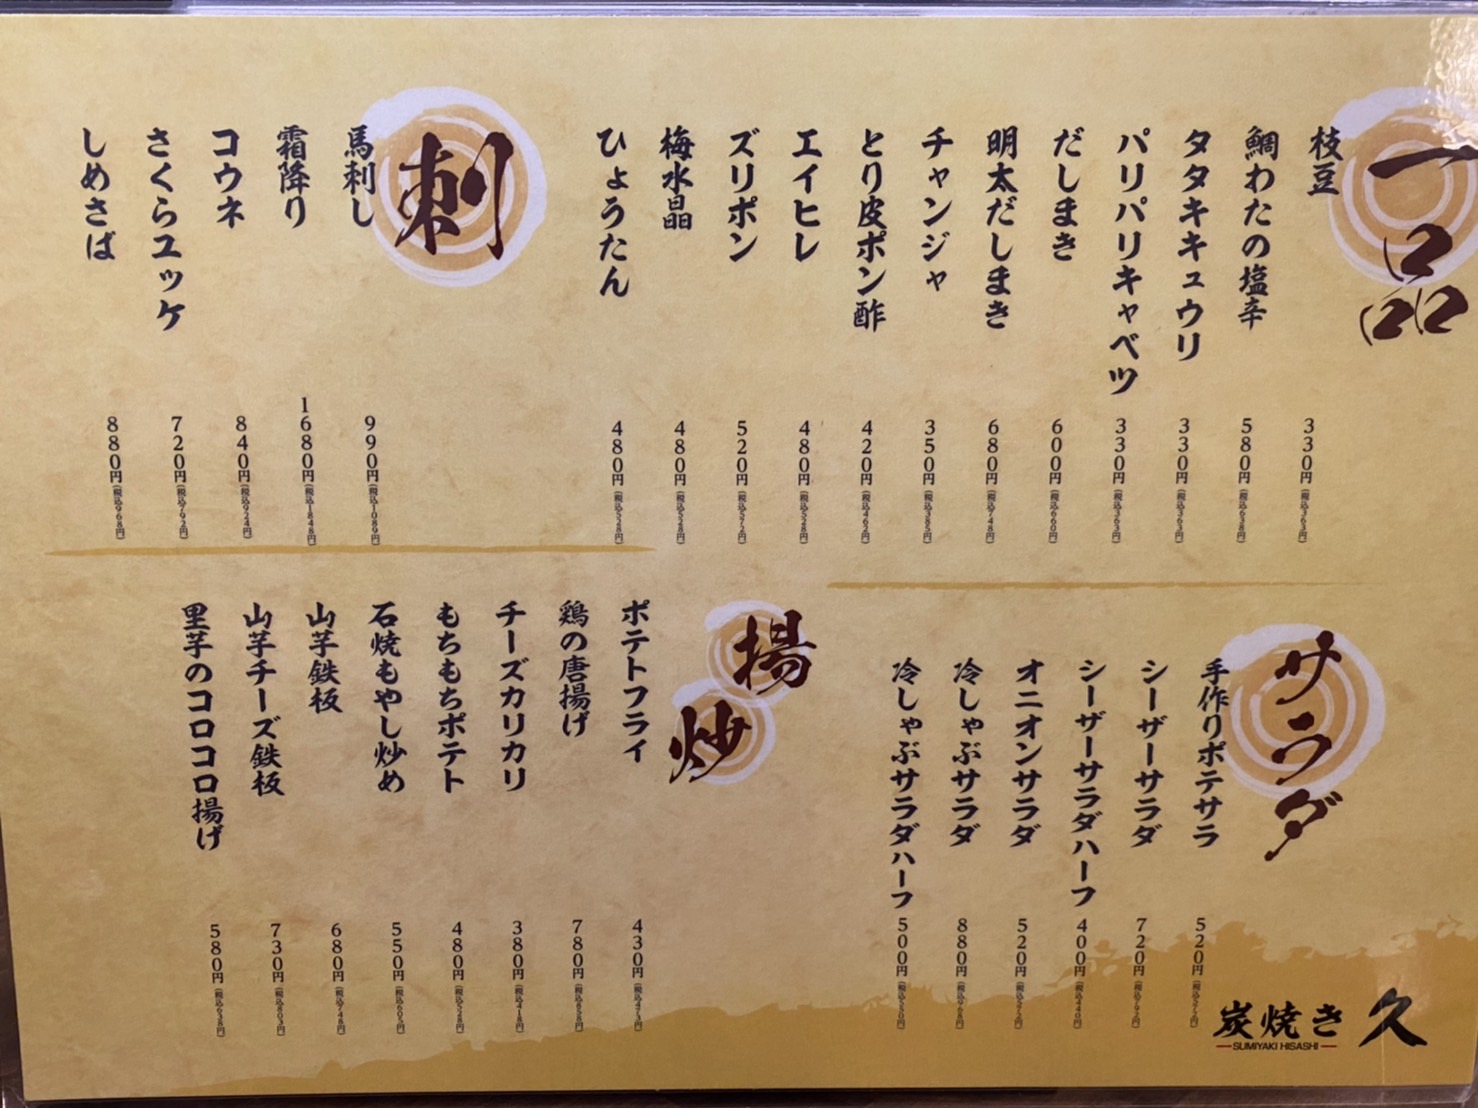 一品
枝豆 330円(税込363円)
鯛わたの塩辛 580円(税込638円)
タタキキュウリ 330円(税込363円)
パリパリキャベツ 330円(税込363円)
だしまき 600円(税込660円)
明太だしまき 680円(税込748円)
チャンジャ 350円(税込385円)
とり皮ポン酢 420円(税込462円)
エイヒレ 480円(税込528円)
ズリポン 520円(税込572円)
梅水晶 480円(税込528円)
ひょうたん 480円(税込528円)
刺
馬刺し 990円(税込1089円)
霜降り 1680円(税込1848円)
コウネ 840円(税込924円)
さくらユッケ 720円(税込792円)
しめさば 880円(税込968円)
サラダ
手作りポテサラ 520円(税込572円)
シーザーサラダ 720円(税込792円)
シーザーサラダハーフ 400円(税込440円)
オニオンサラダ 520円(税込572円)
冷しゃぶサラダ 880円(税込968円)
冷しゃぶサラダハーフ 500円(税込550円)
揚
炒
ポテトフライ 430円(税込473円)
鶏の唐揚げ 780円(税込858円)
チーズカリカリ 380円(税込418円)
もちもちポテト 480円(税込528円)
石焼もやし炒め 550円(税込605円)
山芋鉄板 680円(税込748円)
山芋チーズ鉄板 730円(税込803円)
里芋のコロコロ揚げ 580円(税込638円)
炭焼き 久
SUMIYAKI HISASHI